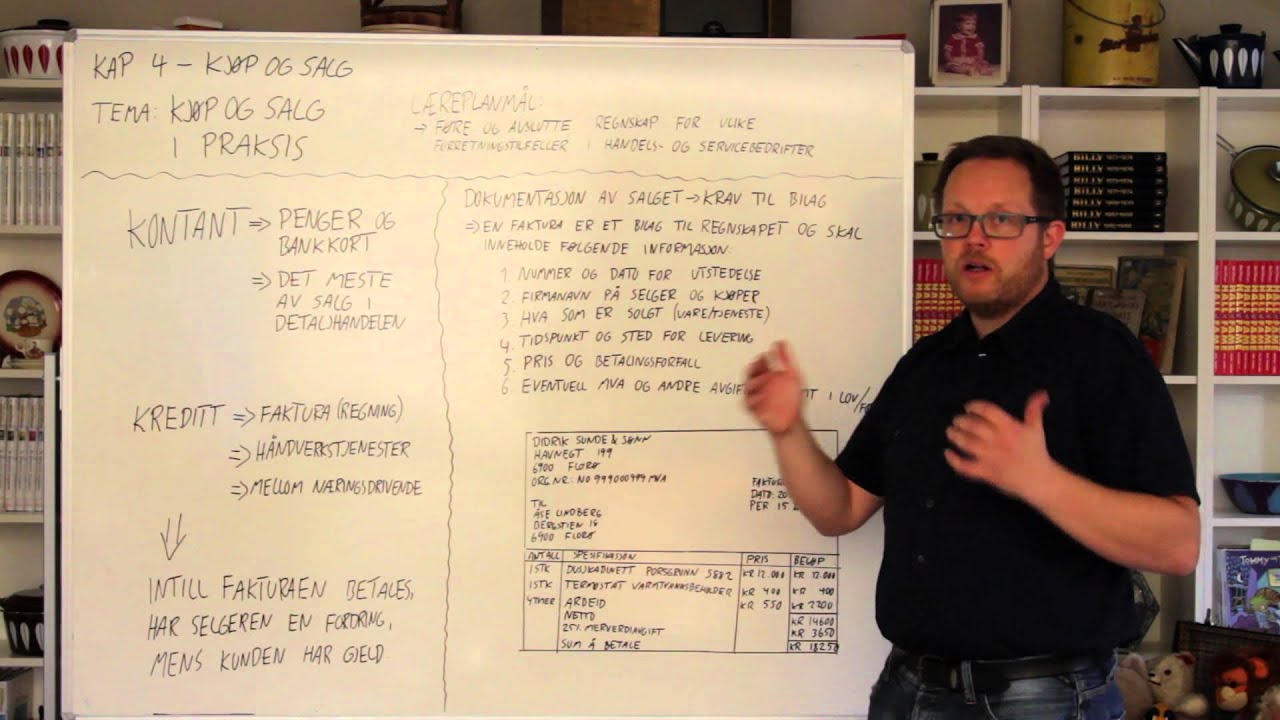 KAP 4 – KJØP OG SALG
TEMA: KJØP OG SALG
I PRAKSIS
LÆREPLANMÅL:
⇒ FØRE OG AVSLUTTE REGNSKAP FOR ULIKE
FORRETNINGSTILFELLER I HANDELS- OG SERVICEBEDRIFTER
KONTANT ⇒ PENGER OG
BANKKORT
⇒ DET MESTE
AV SALG I
DETALJHANDELEN
KREDITT ⇒ FAKTURA (REGNING)
⇒ HÅNDVERKSTJENESTER
⇒ MELLOM NÆRINGSDRIVENDE
INTILL FAKTURAEN BETALES,
HAR SELGEREN EN FORDRING,
MENS KUNDEN HAR GJELD.
DOKUMENTASJON AV SALGET → KRAV TIL BILAG
⇒ EN FAKTURA ER ET BILAG TIL REGNSKAPET OG SKAL
INNEHOLDE FØLGENDE INFORMASJON:
1. NUMMER OG DATO FOR UTSTEDELSE
2. FIRMANAVN PÅ SELGER OG KJØPER
3. HVA SOM ER SOLGT (VARE/TJENESTE)
4. TIDSPUNKT OG STED FOR LEVERING
5. PRIS OG BETALINGSFORFALL
6. EVENTUELL MVA OG ANDRE I LOV/
DIDRIK SUNDE & SØNN
HAVNEGT 199
6900 FLORØ
ORG.NR: NO 999000999 MVA
TIL
ÅSE LINDBERG
BERGSTIEN 15
6900 FLORØ
DATO: 20
PER 15
ANTALL SPESIFIKASJON PRIS BELØP
1 STK DUSJKABINETT PORSGRUNN S882 KR 12.000 KR 12.000
1 STK TERMOSTAT VARMTVANNSBEHOLDER KR 400 KR 400
4 TIMER ARBEID KR 550 KR 2200
NETTO KR 14600
25% MERVERDIAVGIFT KR 3650
SUM Å BETALE KR 18250
BILLY
BILLY
BILLY
BILLY
TOMMY